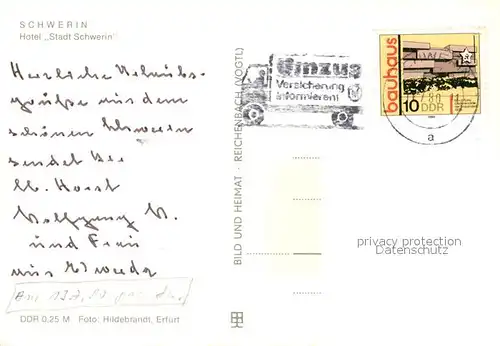 SCHWERIN
Hotel „Stadt Schwerin"
Herzliche Urlaubs-
grüße aus dem
schönen Schwerin
sendet Dir
lb. Horst
Wolfgang B.
und Frau
aus
DDR 0,25 M Foto: Hildebrandt, Erfurt
BILD UND HEIMAT · REICHENBACH (VOGTL)
Umzug
Versicherung
informieren!
bauhaus
10 DDR
a
privacy protection
AKPOOL.DE